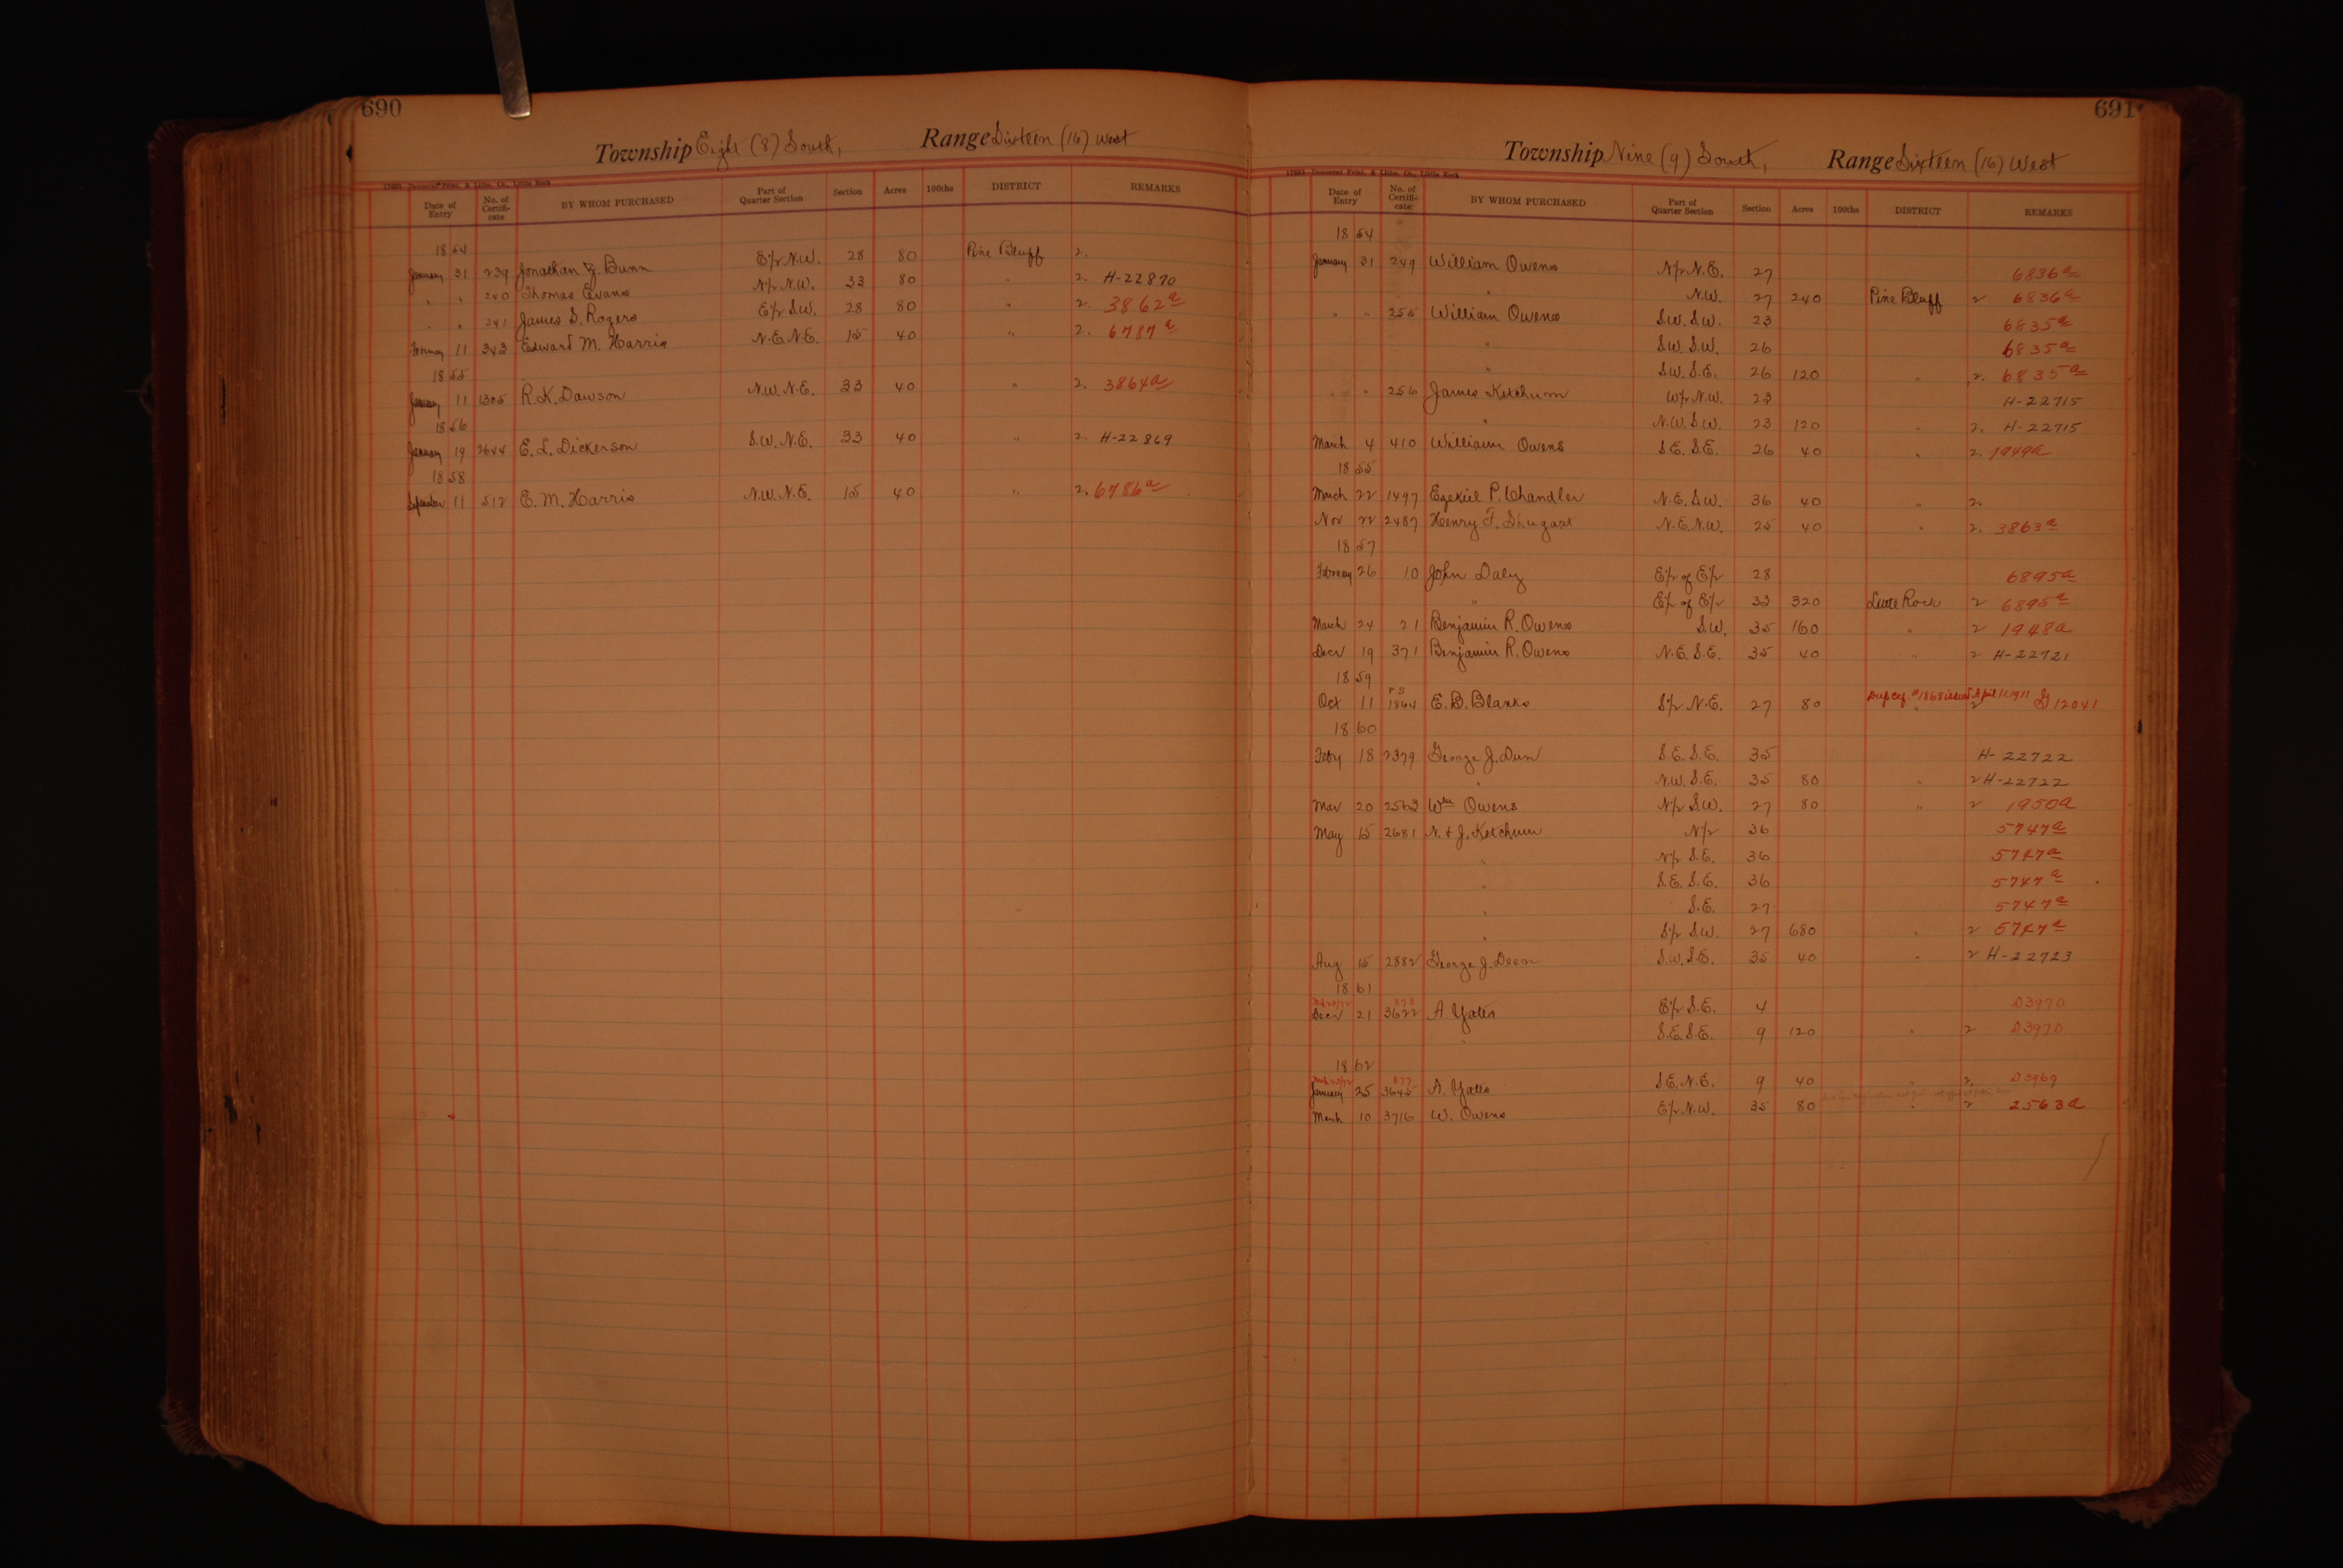 690
Township Eight (8) South, Range Sixteen (16) West
17691 Democrat Print. & Litho. Co., Little Rock
Date of Entry No. of Certifi-cate BY WHOM PURCHASED Part of Quarter Section Section Acres 100ths DISTRICT REMARKS
1854
January 31 239 Jonathan Z. Bunn E½ N.W. 28 80 Pine Bluff 2.
" " 240 Thomas Evans N½ N.W. 33 80 " 2. H-22870
" " 241 James S. Rogers E½ S.W. 28 80 " 2. 3862a
February 11 343 Edward M. Harris N.E. N.E. 15 40 " 2. 6787a
1855
January 11 1305 R.K. Dawson N.W. N.E. 33 40 " 2. 3864a
1856
January 19 2644 E. L. Dickerson S.W. N.E. 33 40 " 2. H-22869
1858
September 11 512 E. M. Harris N.W. N.E. 15 40 " 2. 6786a
691
Township Nine (9) South, Range Sixteen (16) West
17691 Democrat Print. & Litho. Co., Little Rock
Date of Entry No. of Certifi-cate BY WHOM PURCHASED Part of Quarter Section Section Acres 100ths DISTRICT REMARKS
1854
January 31 249 William Owens N½ N.E. 27 6836a
" N.W. 27 240 Pine Bluff 2 6836a
" " 255 William Owens S.W. S.W. 23 6835a
" S.W. S.W. 26 6835a
" S.W. S.E. 26 120 " 2. 6835a
" " 256 James Ketchum W½ N.W. 23 H-22715
" N.W. S.W. 23 120 " 2. H-22715
March 4 410 William Owens S.E. S.E. 26 40 " 2. 1949a
1855
March 22 1497 Ezekiel P. Chandler N.E. S.W. 36 40 " 2.
Nov 22 2487 Henry F. Shugart N.E. N.W. 25 40 " 2. 3863a
1857
February 26 10 John Daly E½ of E½ 28 6895a
" E½ of E½ 33 320 Little Rock 2 6895a
March 24 21 Benjamin R. Owens S.W. 35 160 " 2 1948a
Decr 19 371 Benjamin R. Owens N.E. S.E. 35 40 " 2 H-22721
1859
Oct 11 1864 E. B. Blanks S½ N.E. 27 80 " Dup Ctf. #1868 issued April 11, 1911 2 G 12041
1860
Feby 18 2379 George J. Dun S.E. S.E. 35 H-22722
" N.W. S.E. 35 80 2 H-22722
Mar 20 2563 Wm Owens N½ S.W. 27 80 " 2 1950a
May 15 2681 N. & J. Ketchum N½ 36 5747a
" N½ S.E. 36 5747a
" S.E. S.E. 36 5747a
" S.E. 27 5747a
" S½ S.W. 27 680 " 2 5747a
Aug 15 2882 George J. Deen S.W. S.E. 35 40 " 2 H-22723
1861
878
Decr 21 3622 A Yates E½ S.E. 4 D3970
" S.E. S.E. 9 120 " 2 D3970
1862
877
January 25 3645 A. Yates S.E. N.E. 9 40 " 2. D3969
March 10 3716 W. Owens E½ N.W. 35 80 " 2 2563a